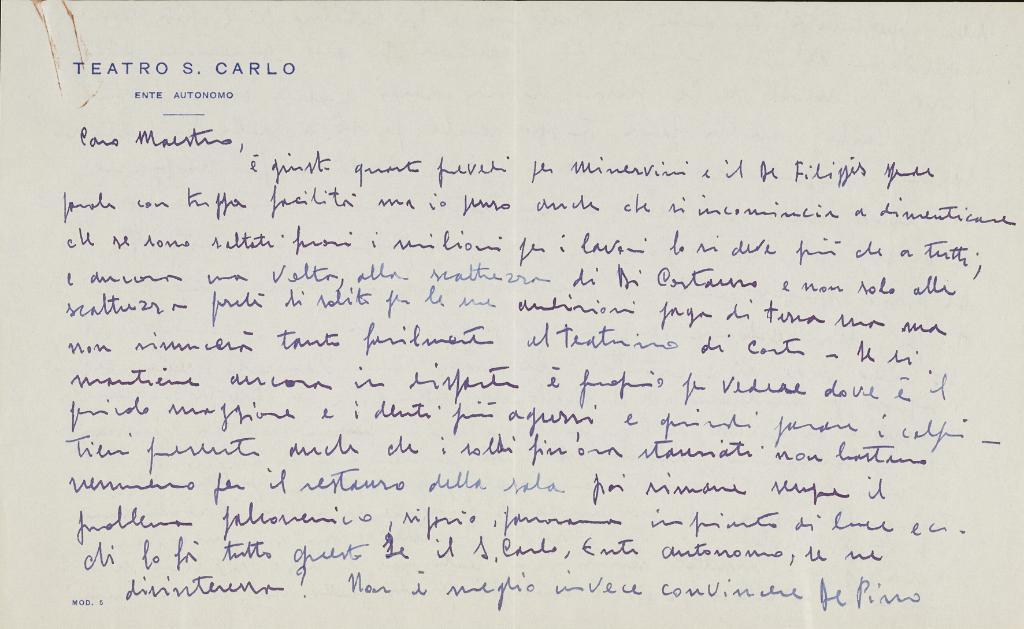 TEATRO S. CARLO
ENTE AUTONOMO
Caro Maestro,
è giusto quanto prevedi per Minervini e il De Filippis
parla con troppa facilità ma io penso anche che si incomincia a dimenticare
che se sono saltati fuori i milioni per i lavori lo si deve più che a tutti,
e ancora una volta, alla scaltrezza di Di Costanzo e non solo alla
scaltrezza di solito per le sue ambizioni paga di ma
non rinuncerà tanto facilmente al teatrino di corte - Se si
mantiene ancora in disparte è proprio per vedere dove è il
pericolo maggiore e i denti più aguzzi e quindi parare i colpi -
Tieni presente anche che i soldi fin'ora stanziati non bastano
nemmeno per il restauro della sala poi rimane sempre il
problema palcoscenico, sipario, panorama impianto di luce ecc.
chi fa tutto questo Se il S. Carlo, Ente autonomo, se ne
disinteressa? Non è meglio invece convincere De Pirro
MOD. 5